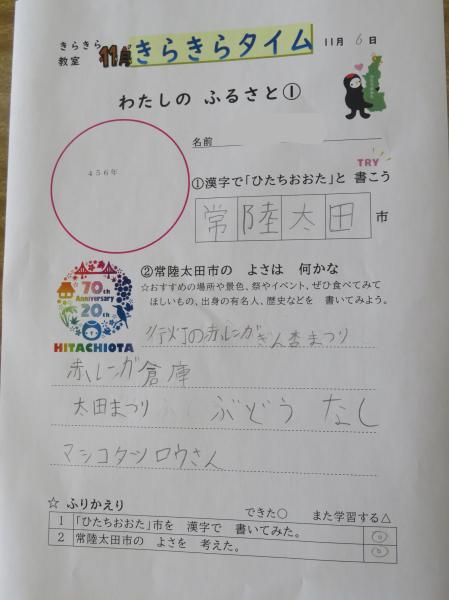 きらきら教室
11月 きらきらタイム 11月 6 日
わたしの ふるさと①
456年
名前
TRY
①漢字で「ひたちおおた」と 書こう
常陸太田 市
70th Anniversary 20th
HITACHIOTA
②常陸太田市の よさは 何かな
☆おすすめの場所や景色、祭やイベント、ぜひ食べてみて
ほしいもの、出身の有名人、歴史などを 書いてみよう。
行灯の赤レンガぎん杏まつり
赤レンガ倉庫
太田まつり ぶどう なし
マシコタツロウさん
☆ ふりかえり できた○ また学習する△
1 「ひたちおおた」市を 漢字で 書いてみた。 ○
2 常陸太田市の よさを 考えた。 ○